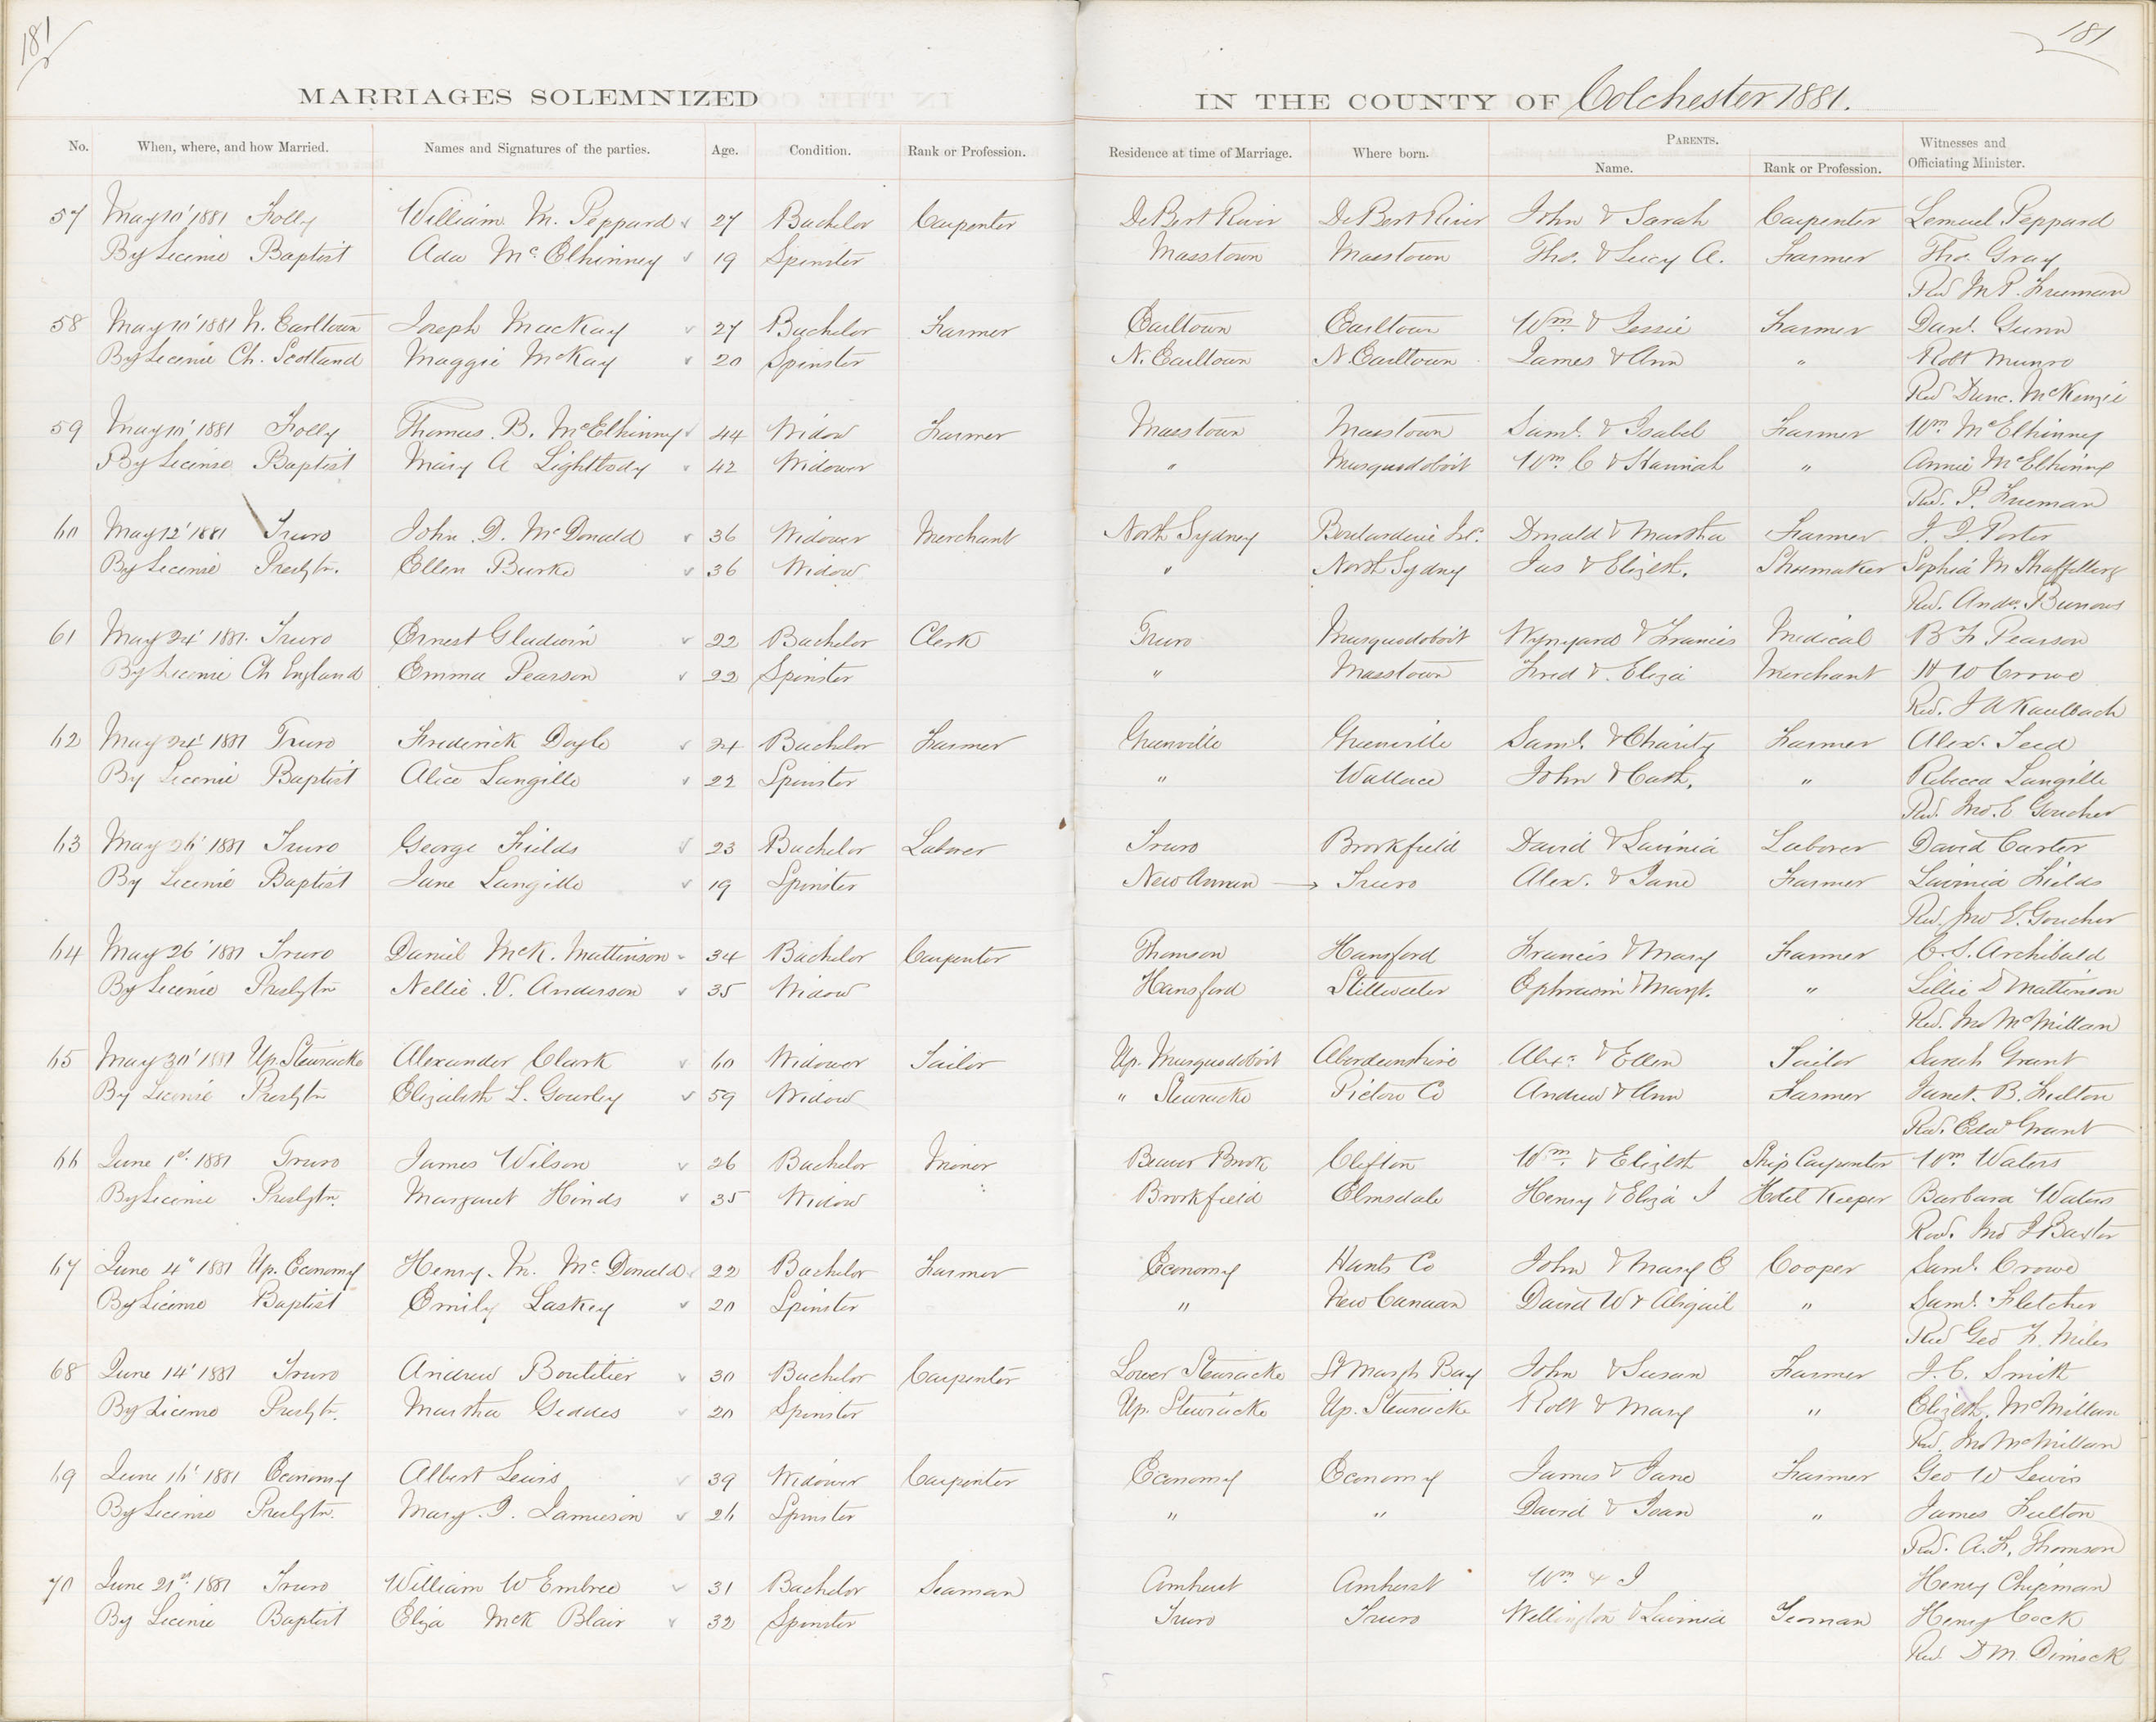 181
181
MARRIAGES SOLEMNIZED IN THE COUNTY OF Colchester 1881.
No. When, where, and how Married. Names and Signatures of the parties. Age. Condition. Rank or Profession. Residence at time of Marriage. Where born. Parents. Witnesses and
Name. Rank or Profession. Officiating Minister.
57 May 10' 1881 Folly William M. Peppard 27 Bachelor Carpenter De Bert River De Bert River John & Sarah Carpenter Lemuel Peppard
By License Baptist Ada McElhinney 19 Spinster Masstown Masstown Tho. & Lucy A. Farmer Tho. Gray
Rev M. P. Freeman
58 May 10' 1881 N. Earltown Joseph MacKay 27 Bachelor Farmer Earltown Earltown Wm & Jessie Farmer Danl. Gunn
By License Ch. Scotland Maggie McKay 20 Spinster N. Earltown N. Earltown James & Ann " Robt Munro
Rev Dunc. McKenzie
59 May 10' 1881 Folly Thomas. B. McElhinney 44 Widow Farmer Masstown Masstown Saml. & Isabel Farmer Wm McElhinney
By License Baptist Mary A Lightbody 42 Widower " Musquodoboit Wm C & Hannah " Annie McElhinny
Rev. P. Freeman
60 May 12' 1881 Truro John. D. McDonald 36 Widower Merchant North Sydney Boularderie Isl. Donald & Martha Farmer J. D. Porter
By License Presbytn. Ellen Burke 36 Widow " North Sydney Jas & Elizbth. Shoemaker Sophia M
Rev. Andw. Burrows
61 May 24' 1881. Truro Ernest Gladwin 22 Bachelor Clerk Truro Musquodoboit Wynyard & Francis Medical B F Pearson
By License Ch England Emma Pearson 22 Spinster " Masstown Fred & Eliza Merchant H W Crowe
Rev. J A Kaulbach
62 May 24' 1881 Truro Frederick Doyle 24 Bachelor Farmer Greenville Greenville Saml. & Charity Farmer Alex. Teed
By License Baptist Alice Langille 22 Spinster " Wallace John & Cath. " Rebecca Langille
Rev. Jno. E Goucher
63 May 26' 1881 Truro George Fields 23 Bachelor Laborer Truro Brookfield David & Lavinia Laborer David Carter
By License Baptist Jane Langille 19 Spinster New Annan → Truro Alex. & Jane Farmer Lavinia Fields
Rev. Jno E. Goucher
64 May 26' 1881 Truro Daniel McK. Mattinson 34 Bachelor Carpenter Thomson Hansford Francis & Mary Farmer C. S. Archibald
By License Presbytn Nellie. V. Anderson 35 Widow Hansford Stillwater Ephraim & Margt. " Lillie D Mattinson
Rev. Jno McMillan
65 May 30' 1881 Up Stewiacke Alexander Clark 60 Widower Tailor Up. Musquodoboit Aberdeenshire Alexr. & Ellen Tailor Sarah Grant
By License Presbytn Elizabeth L. Gourley 59 Widow " Stewiacke Pictou Co Andrew & Ann Farmer Janet. B. Fulton
Rev. Edwd Grant
66 June 1st. 1881 Truro James Wilson 26 Bachelor Minor Beaver Brook Clifton Wm & Elizbth Ship Carpenter Wm Waters
By License Presbytn. Margaret Hinds 35 Widow Brookfield Elmsdale Henry & Eliza J Hotel Keeper Barbara Waters
Rev. Jno J Baxter
67 June 4" 1881 Up. Economy Henry. M. McDonald 22 Bachelor Farmer Economy Hants Co John & Mary E Cooper Saml. Crowe
By License Baptist Emily Laskey 20 Spinster " New Canaan David W & Abigail " Saml. Fletcher
Rev Geo F. Miles
68 June 14' 1881 Truro Andrew Boutilier 30 Bachelor Carpenter Lower Stewiacke St Margts Bay John & Susan Farmer J. C. Smith
By License Presbytn. Martha Geddes 20 Spinster Up. Stewiacke Up. Stewiacke Robt & Mary " Elizbth. McMillan
Rev. Jno McMillan
69 June 16' 1881 Economy Albert Lewis 39 Widower Carpenter Economy Economy James & Jane Farmer Geo W Lewis
By License Presbytn. Mary. J. Jamieson 26 Spinster " " David & Jean " James Fulton
Rev. A. F. Thomson
70 June 21st. 1881 Truro William W Embree 31 Bachelor Seaman Amherst Amherst Wm & J Henry Chipman
By License Baptist Eliza McK Blair 32 Spinster Truro Truro Wellington & Lavinia Yeoman Henry Cock
Rev. D M. Dimock